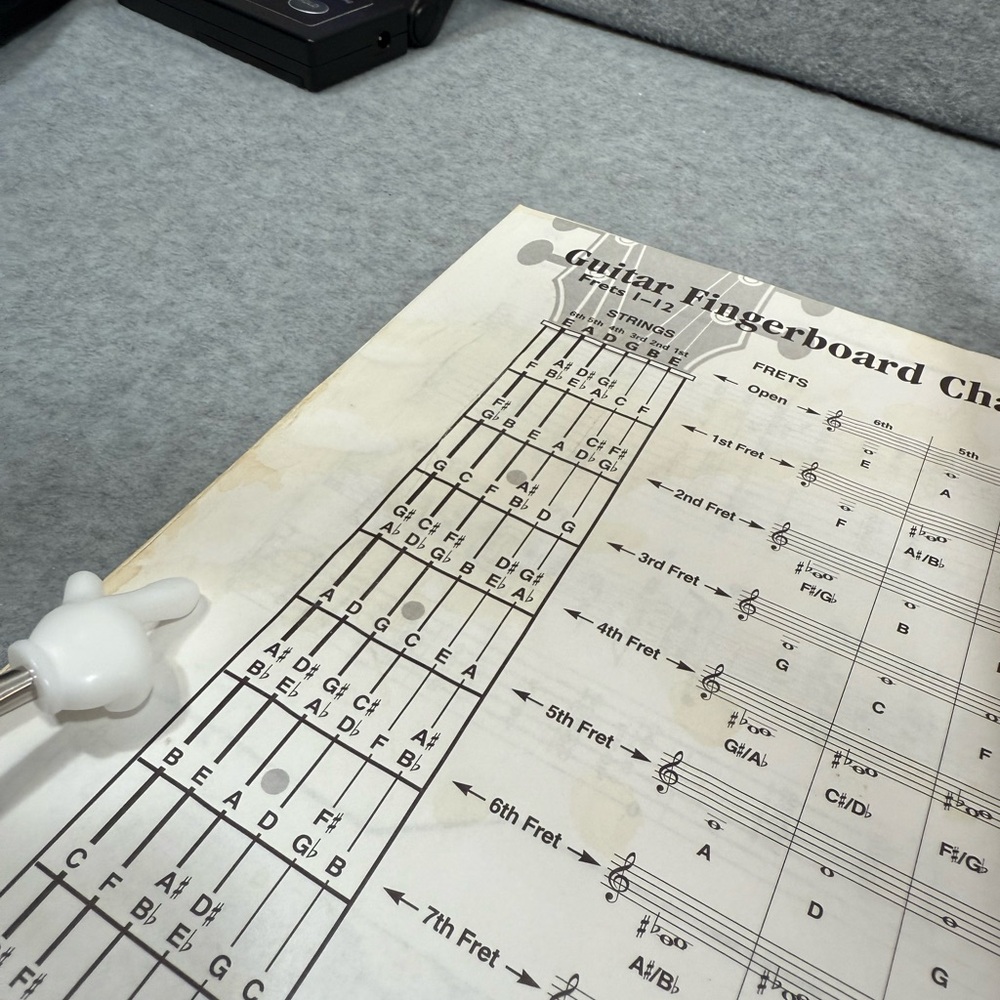 Guitar Fingerboard Cha
Frets 1–12
STRINGS
6th 5th 4th 3rd 2nd 1st
E A D G B E
A♯ D♯ G♯
F B♭ E♭ A♭ C F
F♯ C♯ F♯
G♭ B E A D♭ G♭
A♯
G C F B♭ D G
G♯ C♯ F♯ D♯ G♯
A♭ D♭ G♭ B E♭ A♭
A D G C E A
A♯ D♯ G♯ C♯ A♯
B♭ E♭ A♭ D♭ F B♭
F♯
B E A D G♭ B
A♯ D♯
C F B♭ E♭ G C
F♯
FRETS
Open
6th 5th
E A
1st Fret
F A♯/B♭
2nd Fret
F♯/G♭ B
3rd Fret
G C F
4th Fret
G♯/A♭ C♯/D♭ F♯/G♭
5th Fret
A D G
6th Fret
A♯/B♭
7th Fret